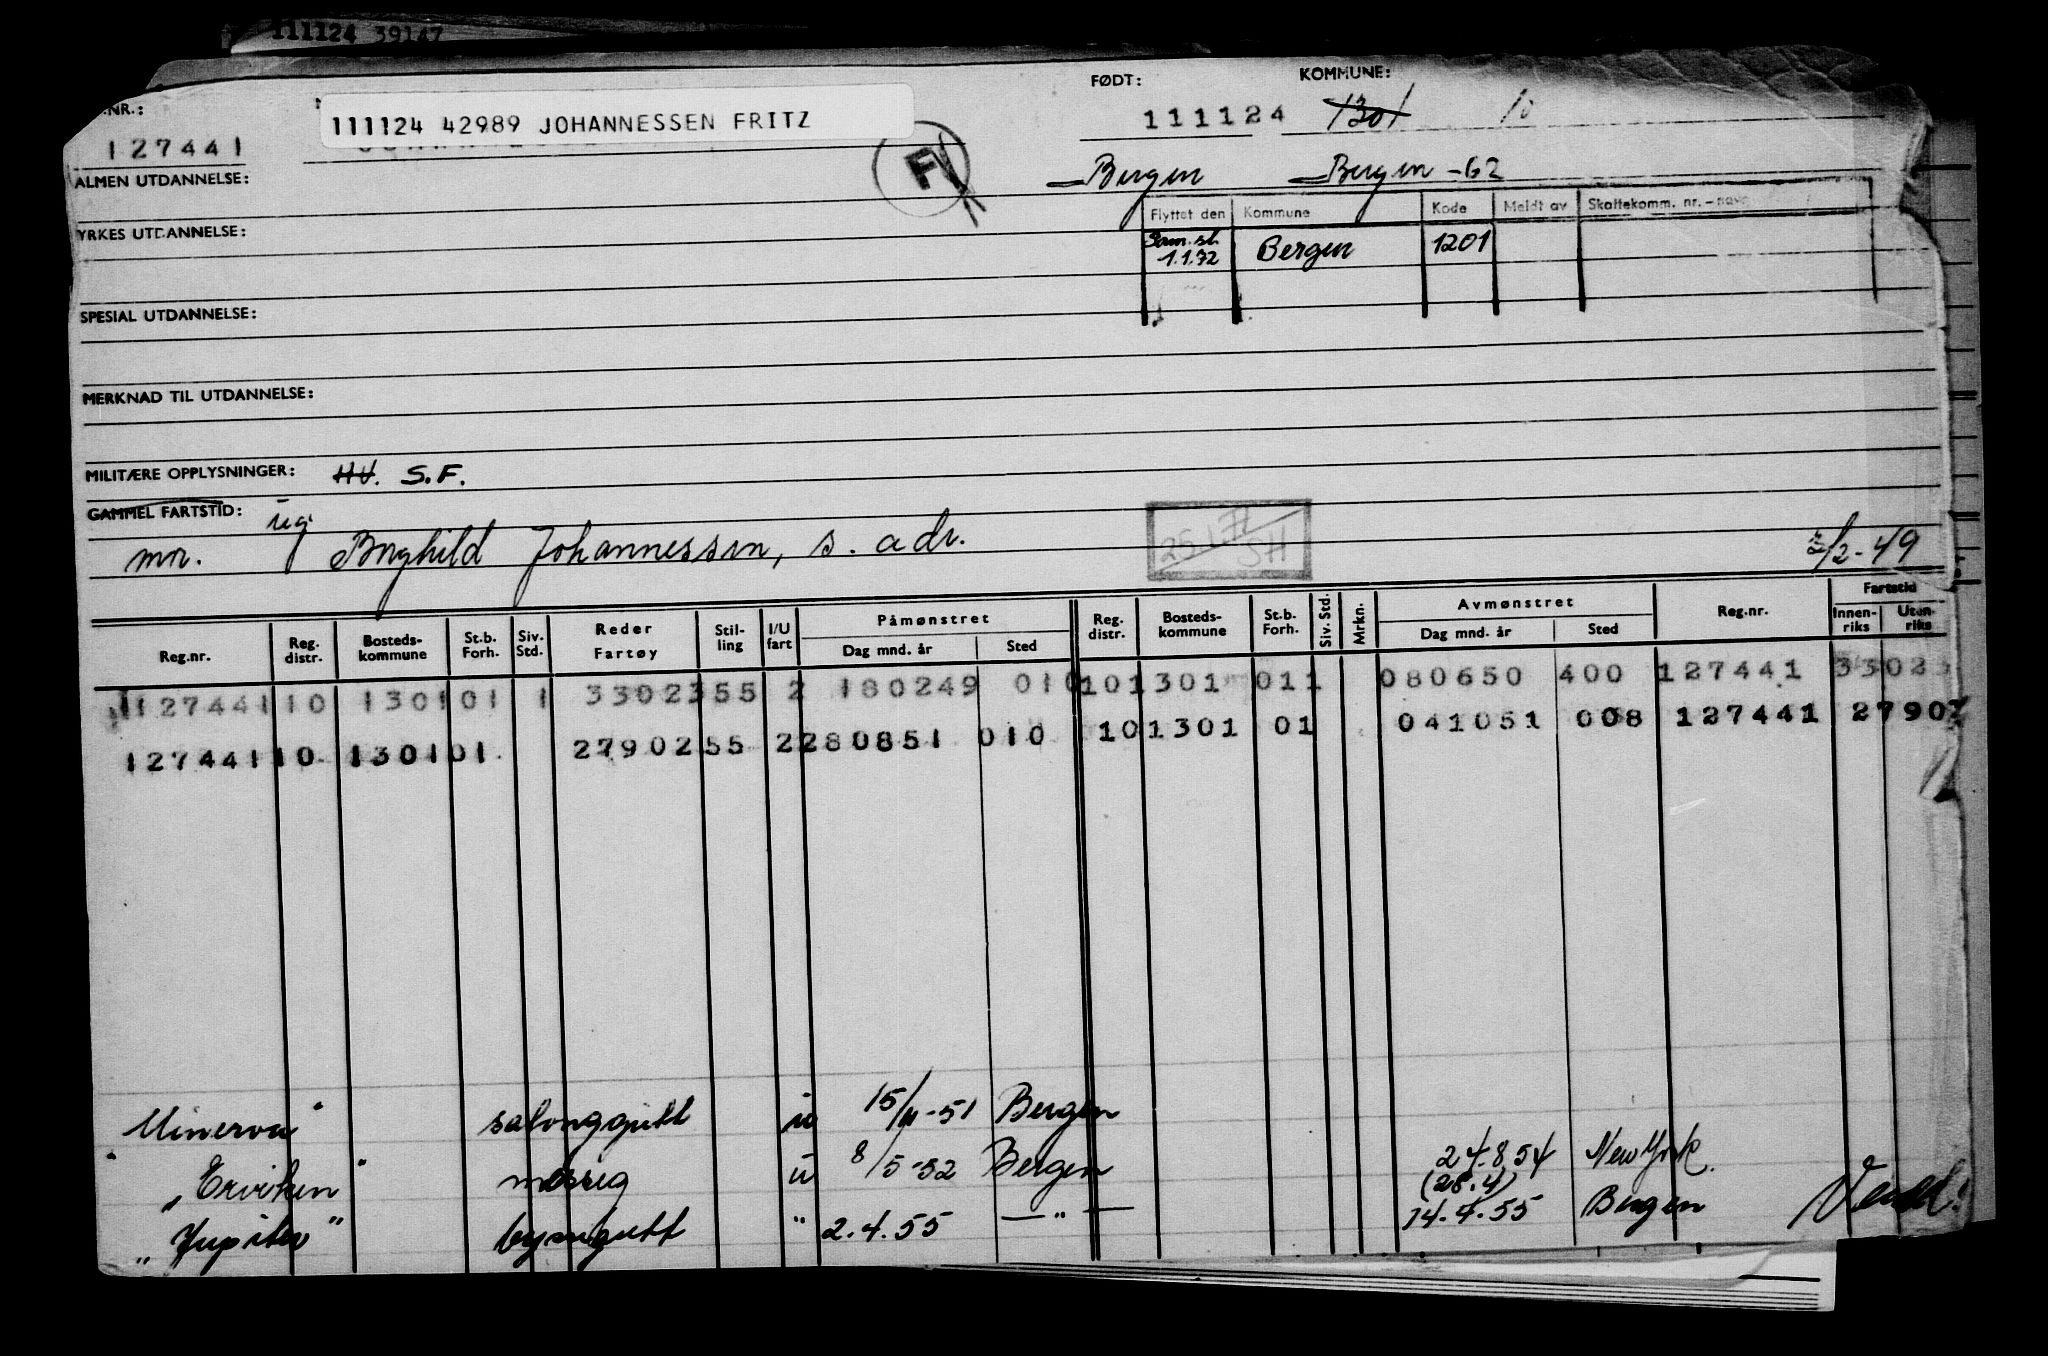 111124 39147
NR.:
FØDT:
KOMMUNE:
111124 42989 JOHANNESSEN FRITZ
127441
111124
1301
10
ALMEN UTDANNELSE:
F
Bergen
Bergen -62
YRKES UTDANNELSE:
Flyttet den Kommune Kode Meldt av Skattekomm. nr. - navn
Sam.sl. 1.1.72 Bergen 1201
SPESIAL UTDANNELSE:
MERKNAD TIL UTDANNELSE:
MILITÆRE OPPLYSNINGER: HV. S.F.
GAMMEL FARTSTID:
ug.
mor. Borghild Johannessen, s. adr.
2/2-49
Reg.nr. Reg. distr. Bosteds-kommune St.b. Forh. Siv. Std. Reder Fartøy Stil-ling I/U fart Påmønstret Dag mnd. år Sted Reg. distr. Bosteds-kommune St.b. Forh. Siv. Std. Mrkn. Avmønstret Dag mnd. år Sted Reg.nr. Fartstid Innen-riks Uten-riks
127441 10 1301 01 1 33023 55 2 180249 010 10 1301 01 1 080650 400 127441 33023
127441 10 1301 01 27902 55 2 280851 010 10 1301 01 041051 008 127441 2790
Minerva" salonggutt u 15/11-51 Bergen
"Erviken" messeg u 8/5-52 Bergen 24.8.54 New York.
(28.4)
"Jupiter" byssegutt " 2.4.55 —"— 14.4.55 Bergen Vend!